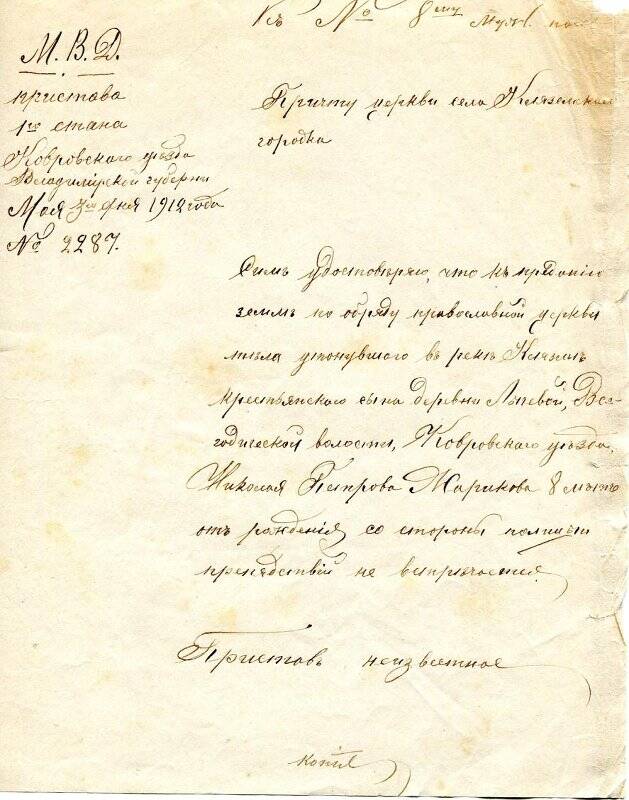 Къ № 8му муж. пола
М. В. Д.
пристава
1го стана
Ковровскаго уѣзда
Владимірской губерни
Мая 3го дня 1912 года
№ 2287.
Причту церкви села Клязьмскаго
городка
Симъ удостовѣряю, что къ преданію
землѣ по обряду православной церкви
тѣла утонувшаго въ рекѣ Клязьмѣ
крестьянскаго сына деревни Лыпевой, Все-
годической волости, Ковровскаго уѣзда,
Николая Петрова Жарикова 8 лѣтъ
отъ рожденія со стороны полиціи
препядствій не встрѣчается
Приставъ неизвестное
копія